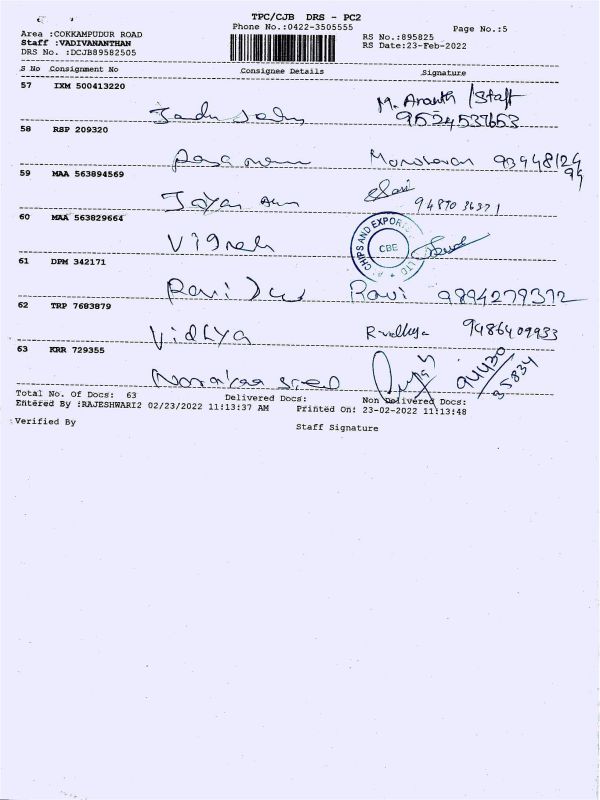 TPC/CJB DRS - PC2
Phone No.:0422-3505555
Page No.:5
Area :COKKAMPUDUR ROAD
RS No.:895825
Staff :VADIVANANTHAN
RS Date:23-Feb-2022
DRS No. :DCJB89582505
S No Consignment No Consignee Details Signature
57 IXM 500413220
M. Ananth /Staff
9524537653
58 RSP 209320
Manoharan 93948124
94
59 MAA 563894569
Jayan
94870 36371
60 MAA 563829664
Vignesh
CHIPS AND EXPORTS LTD
CBE
61 DPM 342171
Ravi Ravi 9894279372
62 TRP 7683879
Vidhya R.vidhya 9486409933
63 KRR 729355
94430
35834
Total No. Of Docs: 63 Delivered Docs: Non Delivered Docs:
Entered By :RAJESHWARI2 02/23/2022 11:13:37 AM Printed On: 23-02-2022 11:13:48
Verified By
Staff Signature